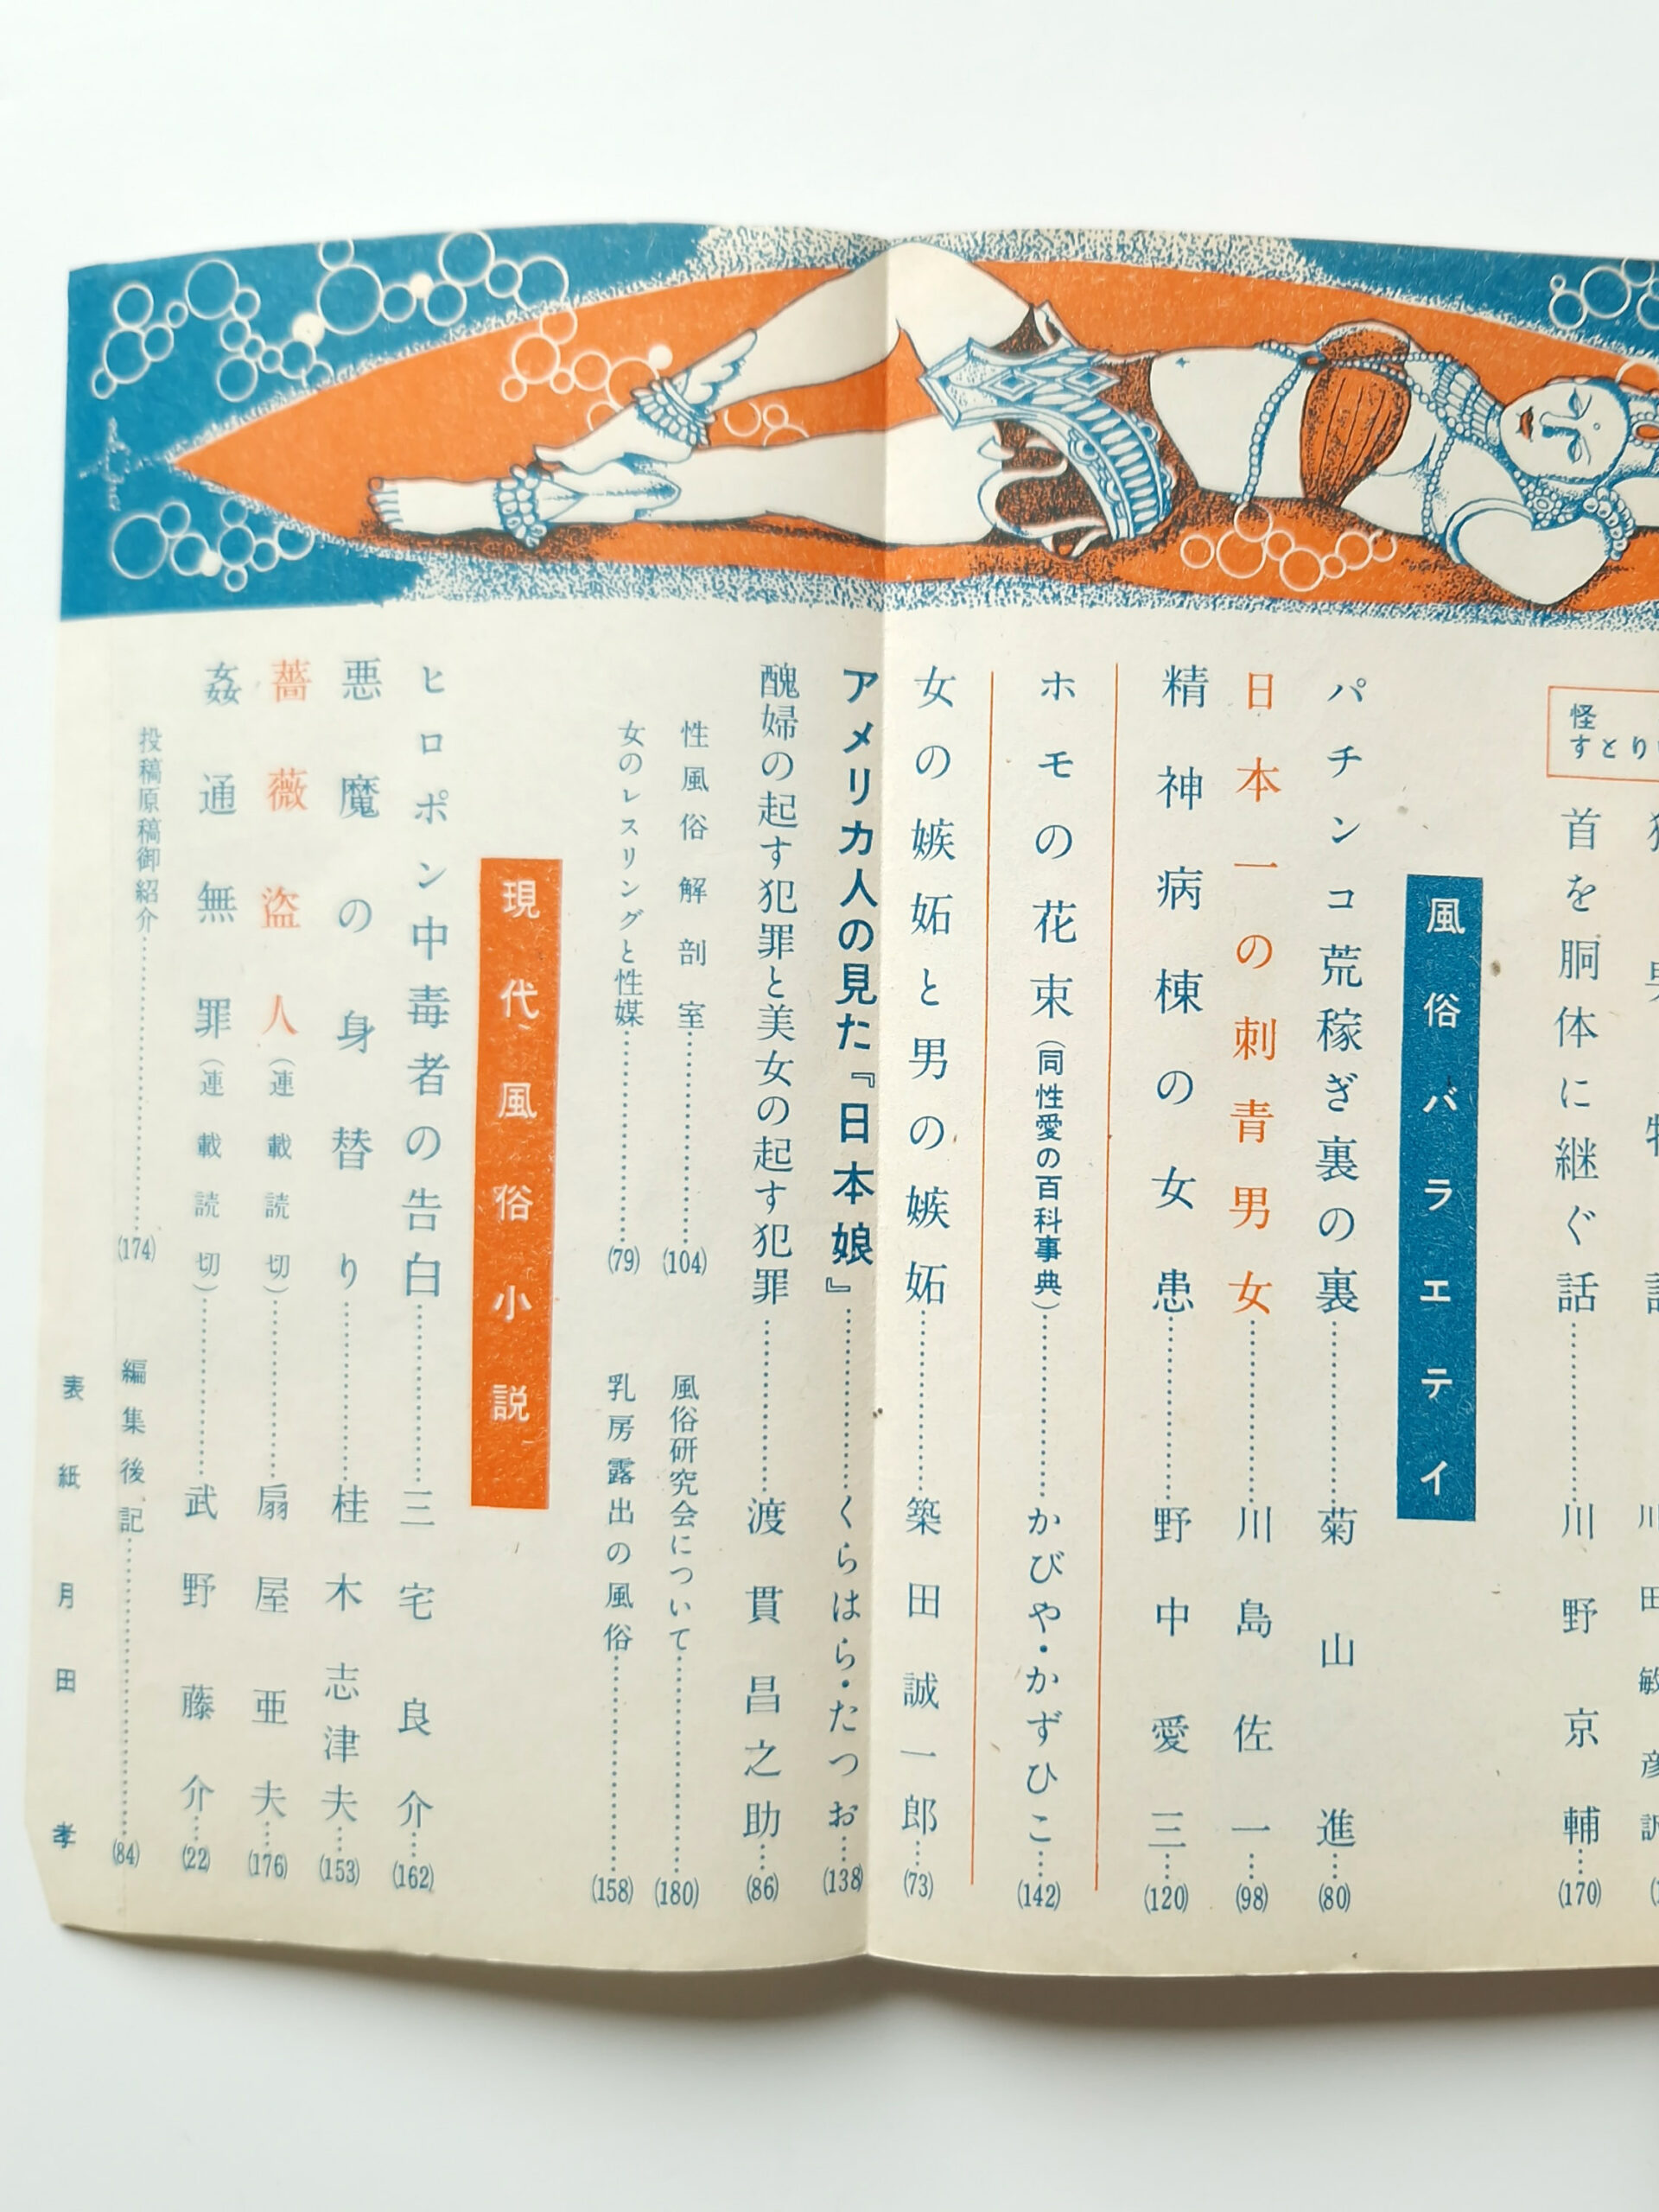 怪
すとりい
川田敏彦訳
首を胴体に継ぐ話……川野京輔…(170)
風俗バラエティ
パチンコ荒稼ぎ裏の裏……菊山進…(80)
日本一の刺青男女……川島佐一…(98)
精神病棟の女患……野中愛三…(120)
ホモの花束(同性愛の百科事典)……かびや・かずひこ…(142)
女の嫉妬と男の嫉妬……築田誠一郎…(73)
アメリカ人の見た『日本娘』……くらはら・たつお…(138)
醜婦の起す犯罪と美女の起す犯罪……渡貫昌之助…(86)
性風俗解剖室……(104)
風俗研究会について……(180)
女のレスリングと性媒……(79)
乳房露出の風俗……(158)
現代風俗小説
ヒロポン中毒者の告白……三宅良介…(162)
悪魔の身替り……桂木志津夫…(153)
薔薇盗人(連載読切)……扇屋亜夫…(176)
姦通無罪(連載読切)……武野藤介…(22)
投稿原稿御紹介……(174)
編集後記……(84)
表紙 月田孝